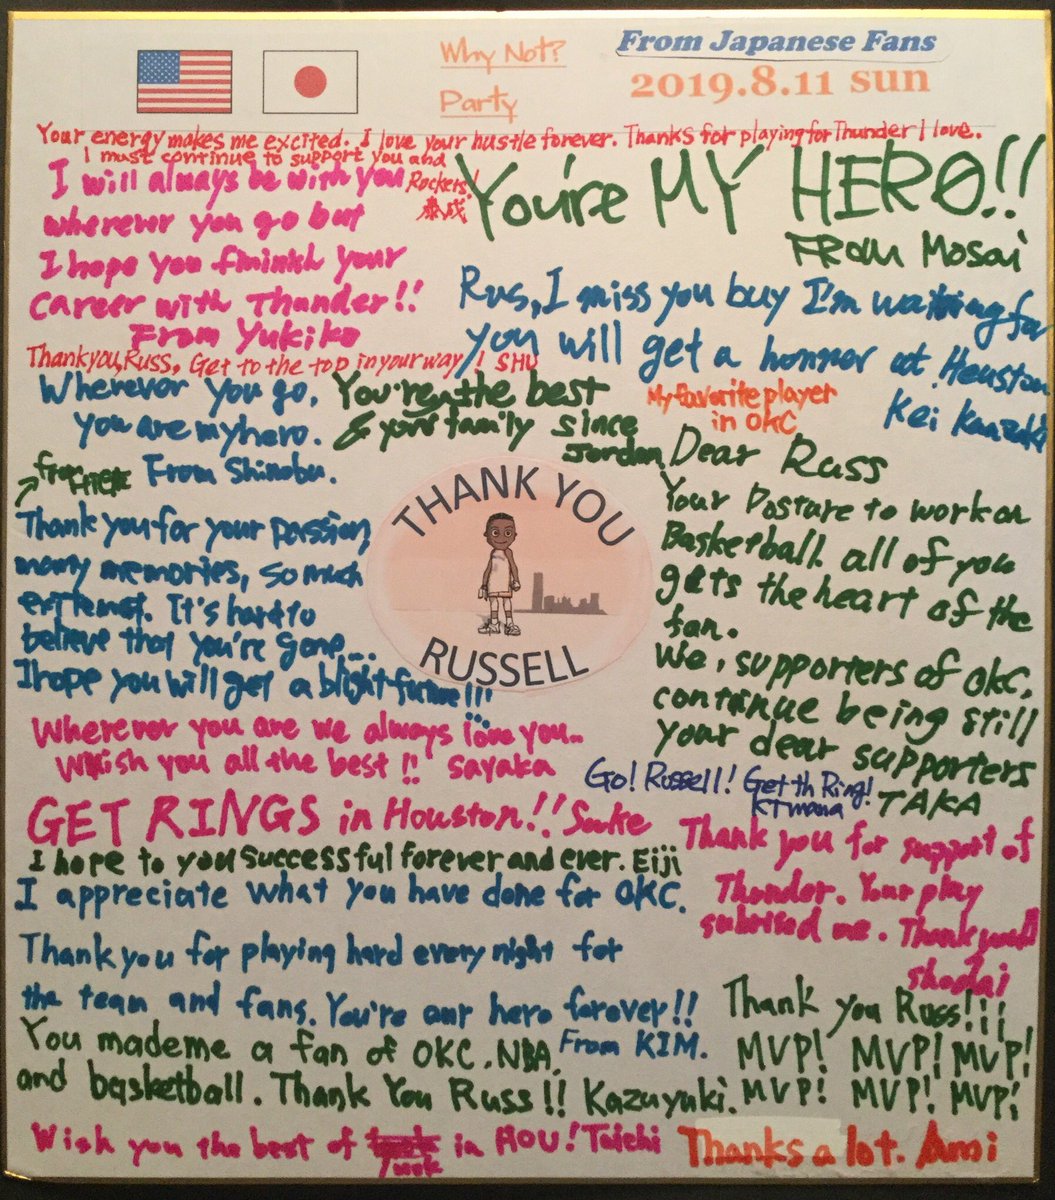 Why Not?
Party
From Japanese Fans
2019.8.11 sun
Your energy makes me excited. I love your hustle forever. Thanks for playing for Thunder I love.
I must continue to support you and
Rockets!
I will always be with you
wherever you go but
I hope you finish your
career with Thunder!!
From Yukiko
You're MY HERO!!
From Mosai
Rus, I miss you buy I'm waiting for
you will get a honnor at Houston
Kei
Thank you, Russ, Get to the top in your way!! SHU
Wherever you go,
you are my hero.
From Shinobu.
You're the best
& your family since
Jordan
from
My favorite player
in OKC
Dear Russ
Your Posture to work on
Basketball all of you
gets the heart of the
fan.
We, supporters of OKC,
continue being still
your dear supporters
TAKA
THANK YOU
RUSSELL
Thank you for your passion,
many memories, so much
It's hard to
believe that you're gone...
I hope you will get a blight future!!!
Wherever you are we always love you..
Whish you all the best!! Sayaka
Go! Russell! Get th Ring!
GET RINGS in Houston!!
I hope to you successful forever and ever. Eiji
I appreciate what you have done for OKC.
Thank you for playing hard every night for
the team and fans. You're our hero forever!!
From KIM.
Thank you for support of
Thunder. Your play
suprised me. Thank you!!
Shodai
You made me a fan of OKC, NBA,
and basketball. Thank You Russ!! Kazuyuki.
Thank you Russ!!!
MVP! MVP! MVP!
MVP! MVP! MVP!
Wish you the best of luck in HOU! Taichi
Thanks a lot. Ami